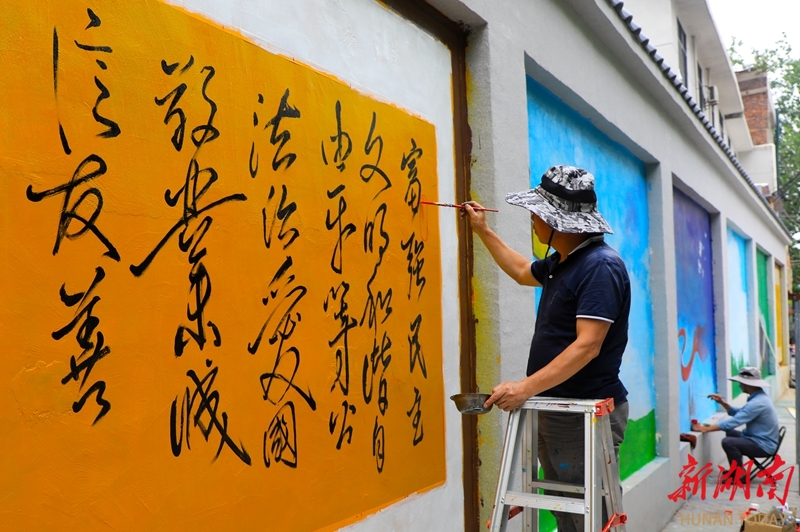 富强民主
文明和谐自
由平等公
法治爱国
敬業诚
信友善
新湖南
HUNAN TODAY